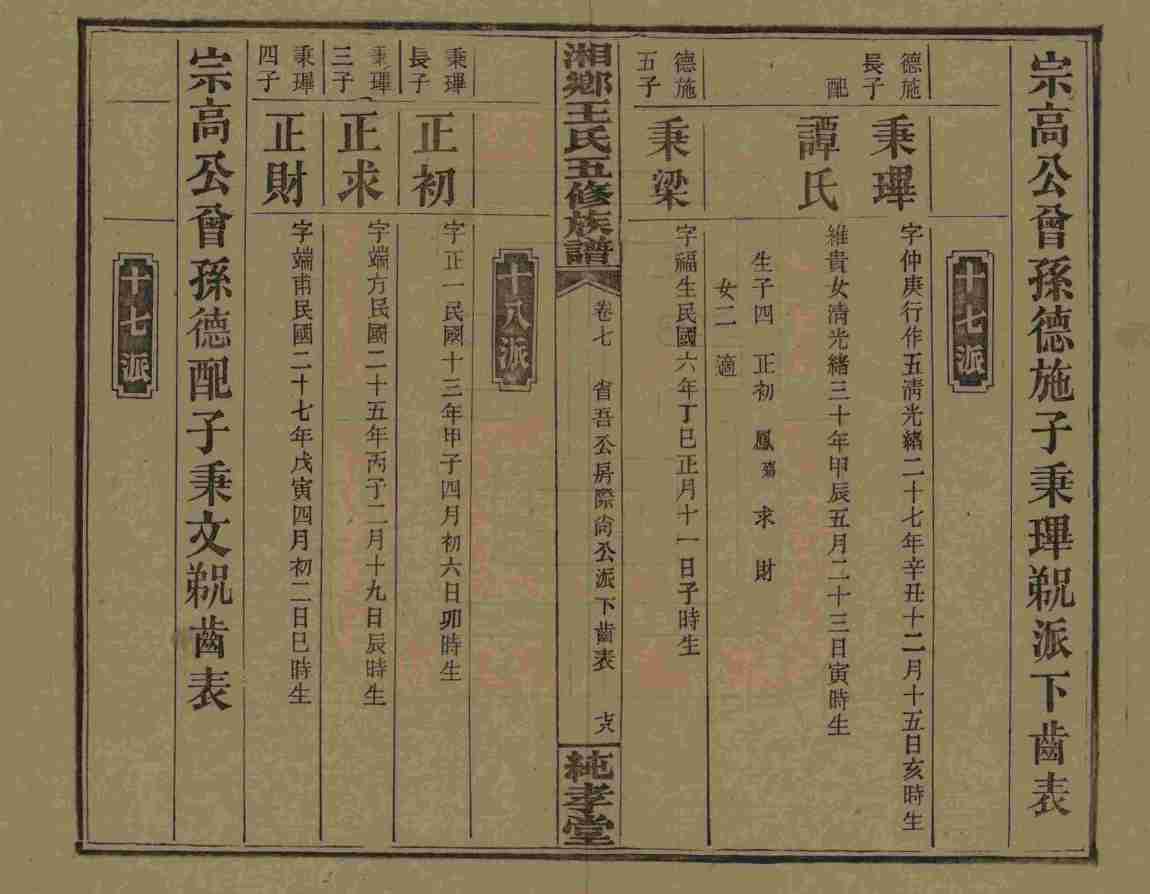 宗高公曾孫德施子秉琿㓡派下齒表
十七派
德施
長子
秉琿
字仲庚行作五清光緒二十七年辛丑十二月十五日亥時生
配
譚氏
維貴女清光緒三十年甲辰五月二十三日寅時生
生子四 正初 鳳殤 求 財
女二 適
德施
五子
秉梁
字福生民國六年丁巳正月十一日子時生
湘鄉王氏五修族譜
卷七 省吾公房際尙公派下齒表
純孝堂
十八派
秉琿
長子
正初
字正一民國十三年甲子四月初六日卯時生
秉琿
三子
正求
字端方民國二十五年丙子二月十九日辰時生
秉琿
四子
正財
字端甫民國二十七年戊寅四月初二日巳時生
宗高公曾孫德配子秉文㓡齒表
十七派